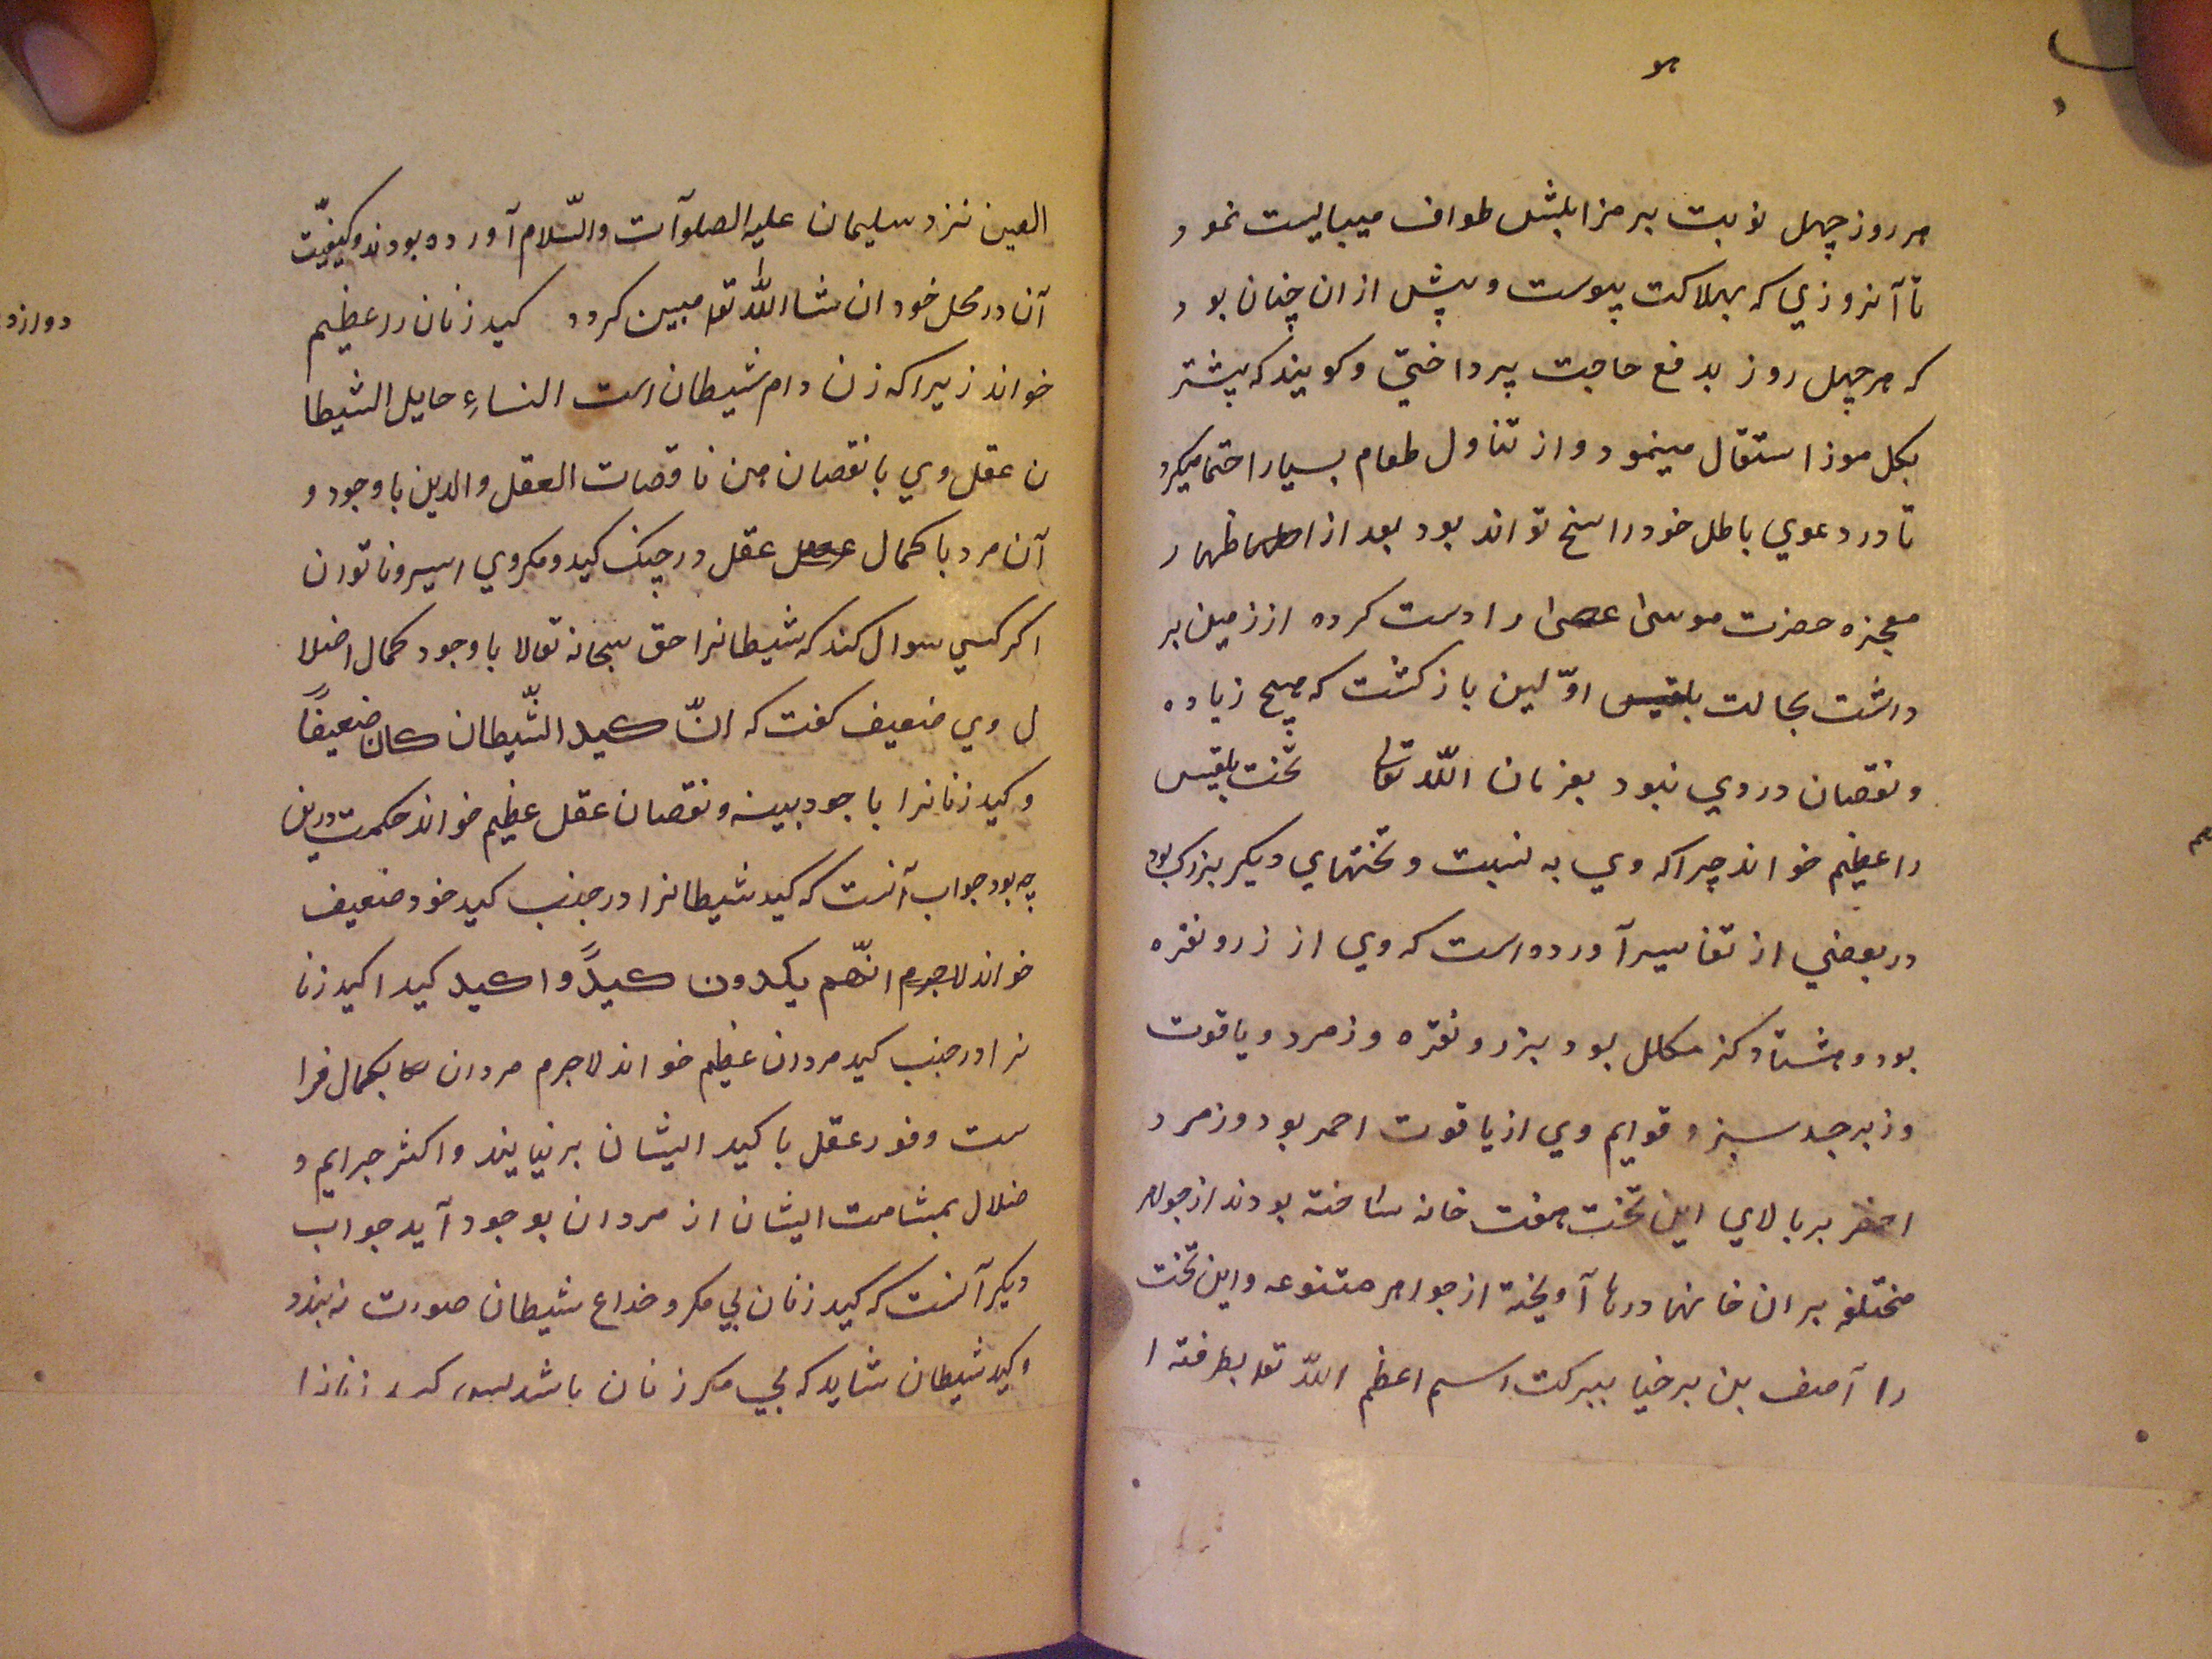 هو
هر روز چهل نوبت بر مزابلش طواف میبایست نمود
تا آنروزي که بهلاکت پیوست و پیش ازان چنان بود
که هر چهل روز بدفع حاجت پرداختي و کویند که پیشتر
بکل موز استقال مینمود و از تناول طعام بسیار احتما میکرد
تا در دعوي باطل خود راسخ تواند بود بعد از اظهار
معجزه حضرت موسی عصی را دست کرده از زمین بر
داشت بحالت اوّلین باز کشت که هیچ زیاده
و نقصان در وي نبود بفرمان اللّه تعا تخت بلقیس
را عظیم خواند چرا که وي به نسبت و تختهاي دیکر بزرك بود
در بعضي از تفاسیر آورده است که وي از زر و نقره
بود و هشتاد کز مکلل بود بزر و نقره و زمرد و یاقوت
و زبرجد سبز و قوایم وي از یاقوت احمر بود و زمرد
اخضر بر بالاي این تخت هفت خانه ساخته بودند از جواهر
مختلفه بران خانها درها آویخته از جواهر متنوعه و این تخت
را آصف بن برخیا ببرکت اسم اعظم اللّه تعا بطرفة ا
العین نزد سلیمان علیه الصلوآت والسّلام آورده بودند و کیفیّت
آن در محل خود ان شا اللّه تعا مبین کردد کید زنان را عظیم
خواند زیرا که زن دام شیطان است النساءِ حایل الشیطا
ن عقل وي با نقصان هن ناقصات العقل والدین با وجود و
آن مرد با کمال عقل در چنک کید و مکر وي اسیر و ناتوان
اکر کسي سوال کند که شیطانرا حق سبحانه تعالا با وجود کمال اضلا
ل وي ضعیف کفت که انّ کید الشّیطان کان ضعیفاً
و کید زنانرا با جود بینه و نقصان عقل عظیم خواند حکمت درین
چه بود جواب آنست که کید شیطانرا در جنب کید خود ضعیف
خواند لاجرم انهّم یکدون کیدًا و اکید کیدا کید زنا
نرا در جنب کید مردان عظیم خواند لاجرم مردان بکمال فرا
ست وفور عقل با کید ایشان بر نیایند و اکثر جرایم و
ضلال بمشامت ایشان از مردان بوجود آید جواب
دیکر آنست که کید زنان بي مکر و خداع شیطان صورت نه بندد
و کید شیطان شاید که بي مکر زنان باشد